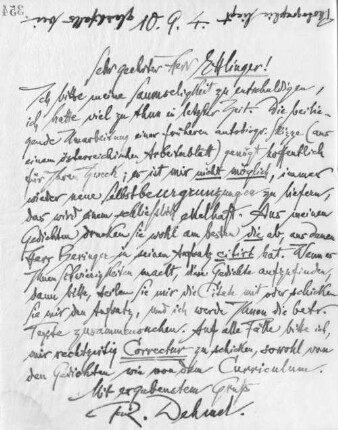 354
Photographie liegt gleichfalls bei.
10.9.4.
Sehr geehrter Herr Ettlinger!
Ich bitte meine Saumseligkeit zu entschuldigen,
ich hatte viel zu thun in letzter Zeit. Die beilie-
gende Umarbeitung einer früheren autobiogr. Skizze (aus
einem österreichischen Arbeiterblatt) genügt hoffentlich
für Ihren Zweck; es ist mir nicht möglich, immer
wieder neue Selbstbeurgrunzungen zu liefern,
das wird einem schließlich ekelhaft. Aus meinen
Gedichten drucken Sie wohl am besten die ab, aus denen
Herr Beringer in seinem Aufsatz citirt hat. Wenn er
Ihnen Schwierigkeiten macht, diese Gedichte aufzufinden,
dann bitte, teilen Sie mir die Citate mit oder schicken
Sie mir den Aufsatz, und ich werde Ihnen die betr.
Texte zusammensuchen. Auf alle Fälle bitte ich,
mir rechtzeitig Correctur zu schicken, sowohl von
den Gedichten wie von dem Curriculum.
Mit ergebenstem Gruß
R. Dehmel.